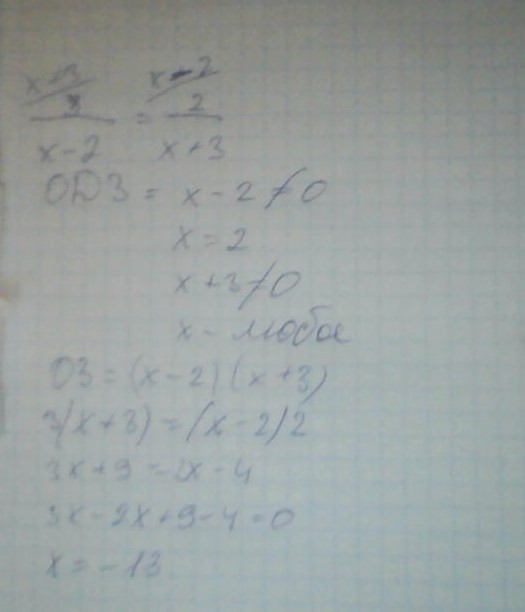 x+3 x-2
3 = 2
x-2 x+3
ОДЗ = x-2≠0
x=2
x+3≠0
x- любое
ОЗ = (x-2)(x+3)
3(x+3)=(x-2)2
3x+9=2x-4
3x-2x+9-4=0
x=-13